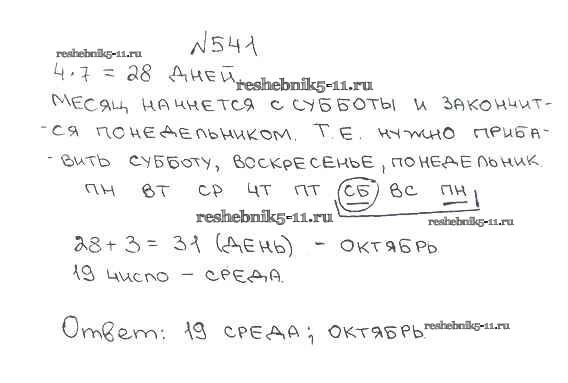 №541
reshebnik5-11.ru
4·7 = 28 дней
reshebnik5-11.ru
Месяц начнется с субботы и закончит-
-ся понедельником. Т.е. нужно приба-
-вить субботу, воскресенье, понедельник.
пн вт ср чт пт сб вс пн
reshebnik5-11.ru
reshebnik5-11.ru
28 + 3 = 31 (день) - октябрь
19 число - среда.
Ответ: 19 среда; октябрь.
reshebnik5-11.ru